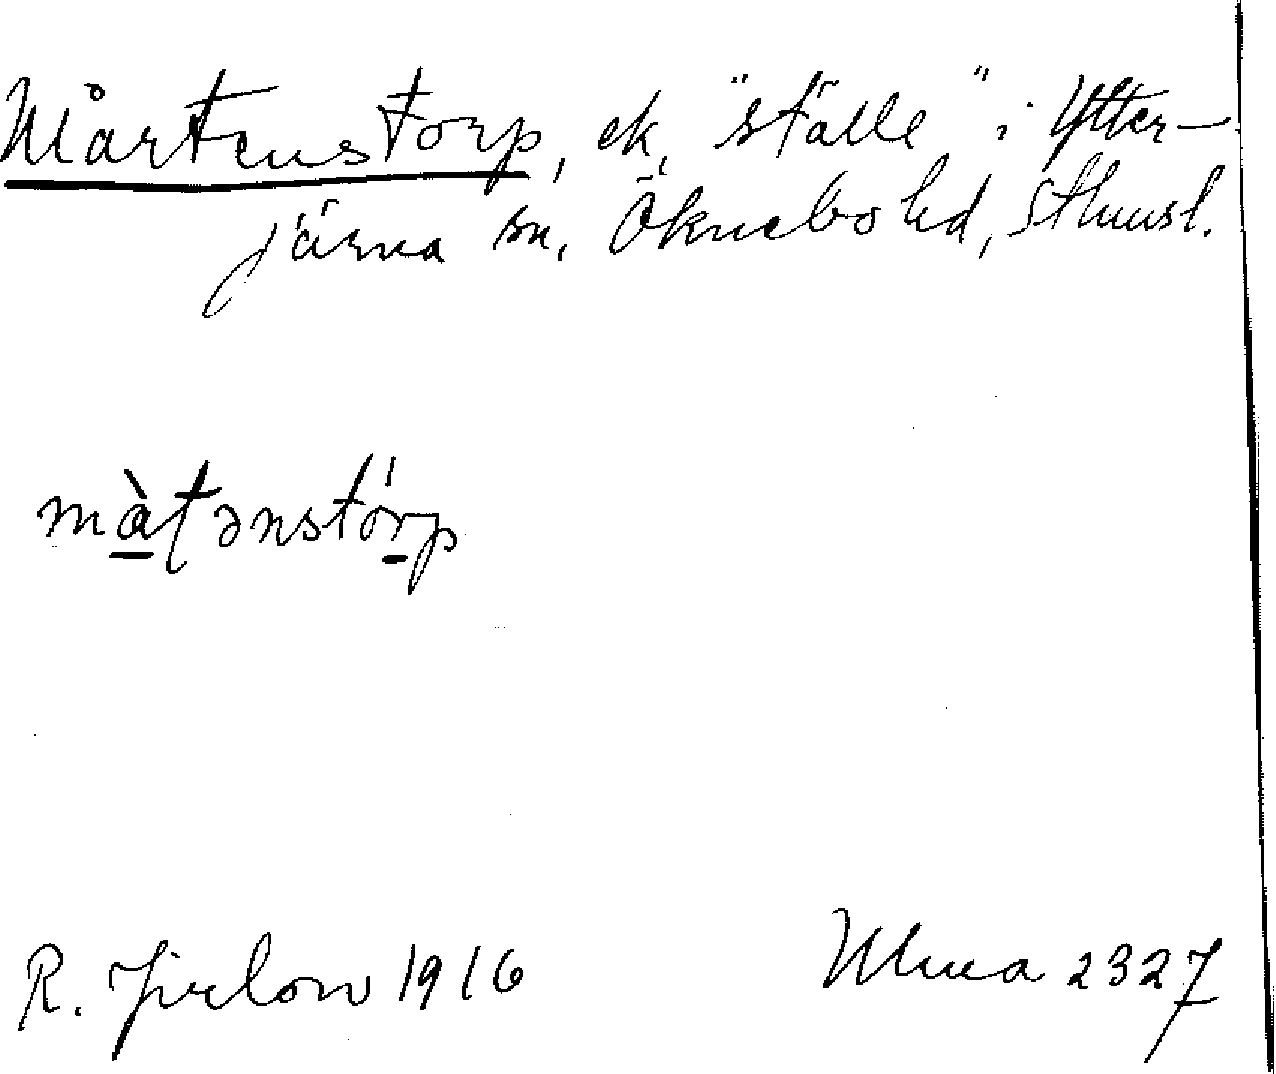 Mårtenstorp, ek, "ställe" i Ytter-
järna sn, Öknebo hd, Sthmsl.
mɑ̀ʈənstórp
R. Jirlow 1916
Ulma 2327